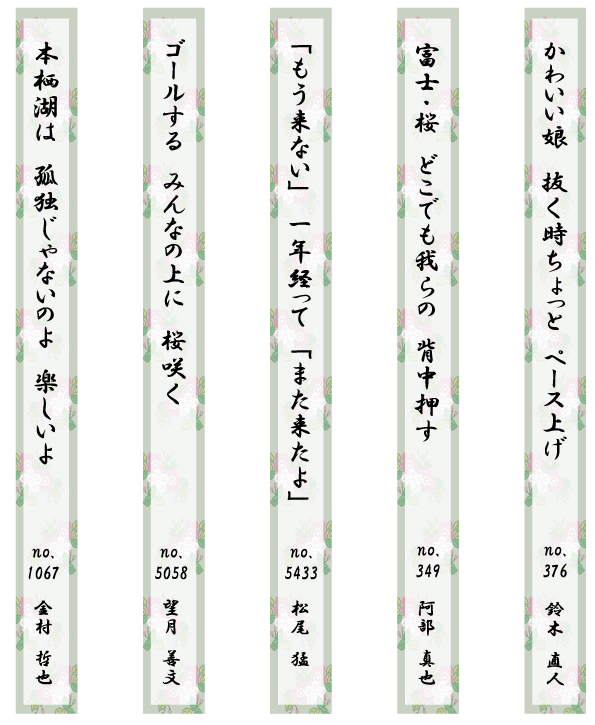 かわいい娘　抜く時ちょっと　ペース上げ
no、
376
鈴木　直人
富士・桜　どこでも我らの　背中押す
no、
349
阿部　真也
「もう来ない」　一年経って　「また来たよ」
no、
5433
松尾　猛
ゴールする　みんなの上に　桜咲く
no、
5058
望月　善文
本栖湖は　孤独じゃないのよ　楽しいよ
no、
1067
金村　哲也